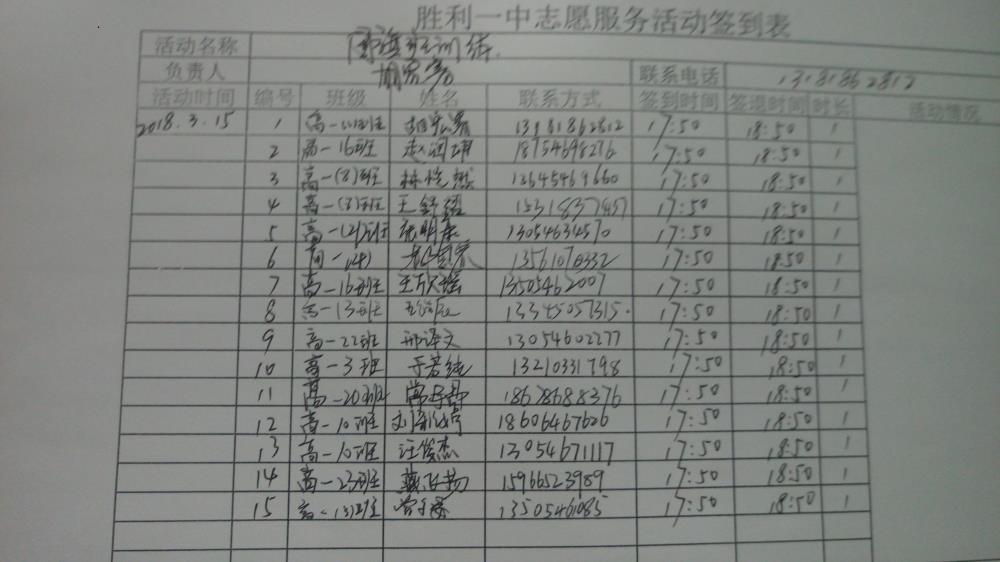 胜利一中志愿服务活动签到表
活动名称
负责人 联系电话 13181862812
活动时间 编号 班级 姓名 联系方式 签到时间 签退时间 时长 活动情况
2018.3.15 1 高一 班 13181862812 17:50 18:50 1
2 高一16班 18754698276 17:50 18:50 1
3 高一(8)班 13645469660 17:50 18:50 1
4 高一(8)班 王舒 15318377457 17:50 18:50 1
5 高一(2)班 张明 13054634570 17:50 18:50 1
6 高一(4) 13561070332 17:50 18:50 1
7 高一16班 王欣瑶 13505462007 17:50 18:50 1
8 高一13班 13345057315 17:50 18:50 1
9 高一22班 邢泽文 13054602277 17:50 18:50 1
10 高一3班 于若纯 13210331798 17:50 18:50 1
11 高一20班 18678688376 17:50 18:50 1
12 高一10班 18606467626 17:50 18:50 1
13 高一10班 汪俊杰 13054671117 17:50 18:50 1
14 高一23班 15966523989 17:50 18:50 1
15 高一 班 13505461085 17:50 18:50 1